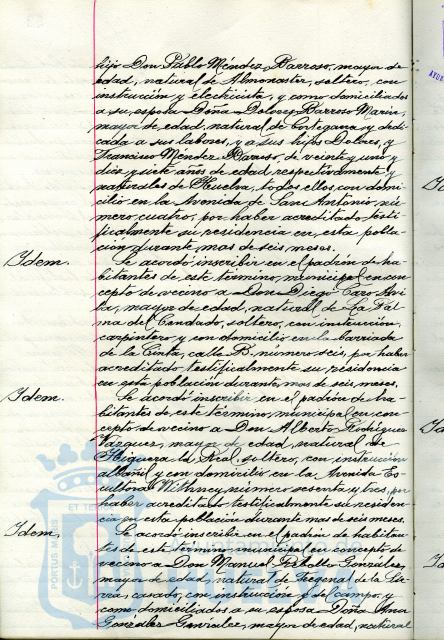 hijo Don Pablo Méndez Barroso, mayor de
edad, natural de Almonaster, soltero, con
instrucción y electricista, y como domiciliados
a su esposa Doña Dolores Barroso Marin,
mayor de edad, natural de Cortegana y dedi-
cada a sus labores, y a sus hijos Dolores, y
Francisco Méndez Barroso, de veinte y uno y
diez y siete años de edad respectivamente y
naturales de Huelva, todos ellos con domi-
cilio en la Avenida de San Antonio, nú-
mero cuatro, por haber acreditado testi-
ficalmente su residencia en esta pobla-
ción durante mas de seis meses.
Idem. Se acordó inscribir en el padrón de ha-
bitantes de este término municipal en con-
cepto de vecino a Don Diego Caro Avi-
la, mayor de edad, natural de La Pal-
ma del Condado, soltero, con instrucción,
carpintero y con domicilio en la barriada
de la Cinta, calle B. número seis, por haber
acreditado testificalmente su residencia
en esta población durante mas de seis meses.
Idem. Se acordó inscribir en el padrón de ha-
bitantes de este término municipal en con-
cepto de vecino a Don Alberto Rodríguez
Vázquez, mayor de edad, natural de
Higuera la Real, soltero, con instrucción
albañil y con domicilio en la Avenida Es-
cultora Withney número sesenta y tres, por
haber acreditado testificalmente su residen-
cia en esta población durante mas de seis meses.
Idem. Se acordó inscribir en el padrón de habitan-
tes de este término municipal en concepto de
vecino a Don Manuel Rebollo González,
mayor de edad, natural de Fregenal de la Sie-
rra, casado, con instrucción y del campo, y
como domiciliados a su esposa Doña Ana
González González, mayor de edad, natural
PORTUS MARIS